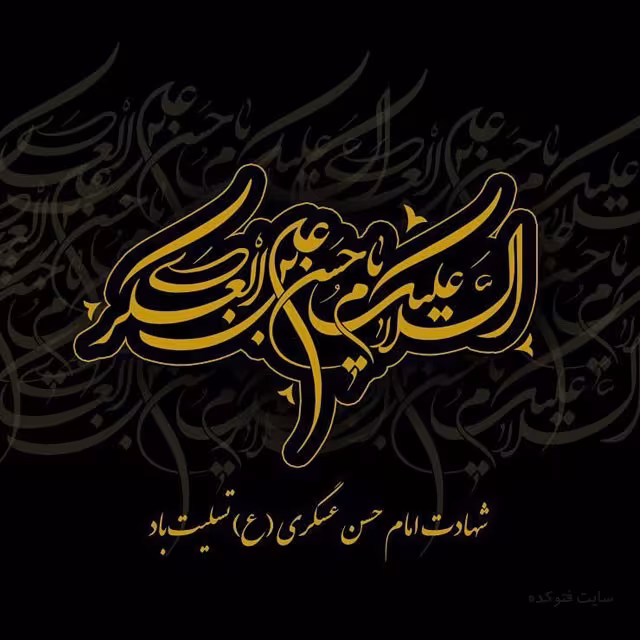 السلام علیک یا حسن بن علی العسکری
شهادت امام حسن عسگری (ع) تسلیت باد
سایت فتوکده